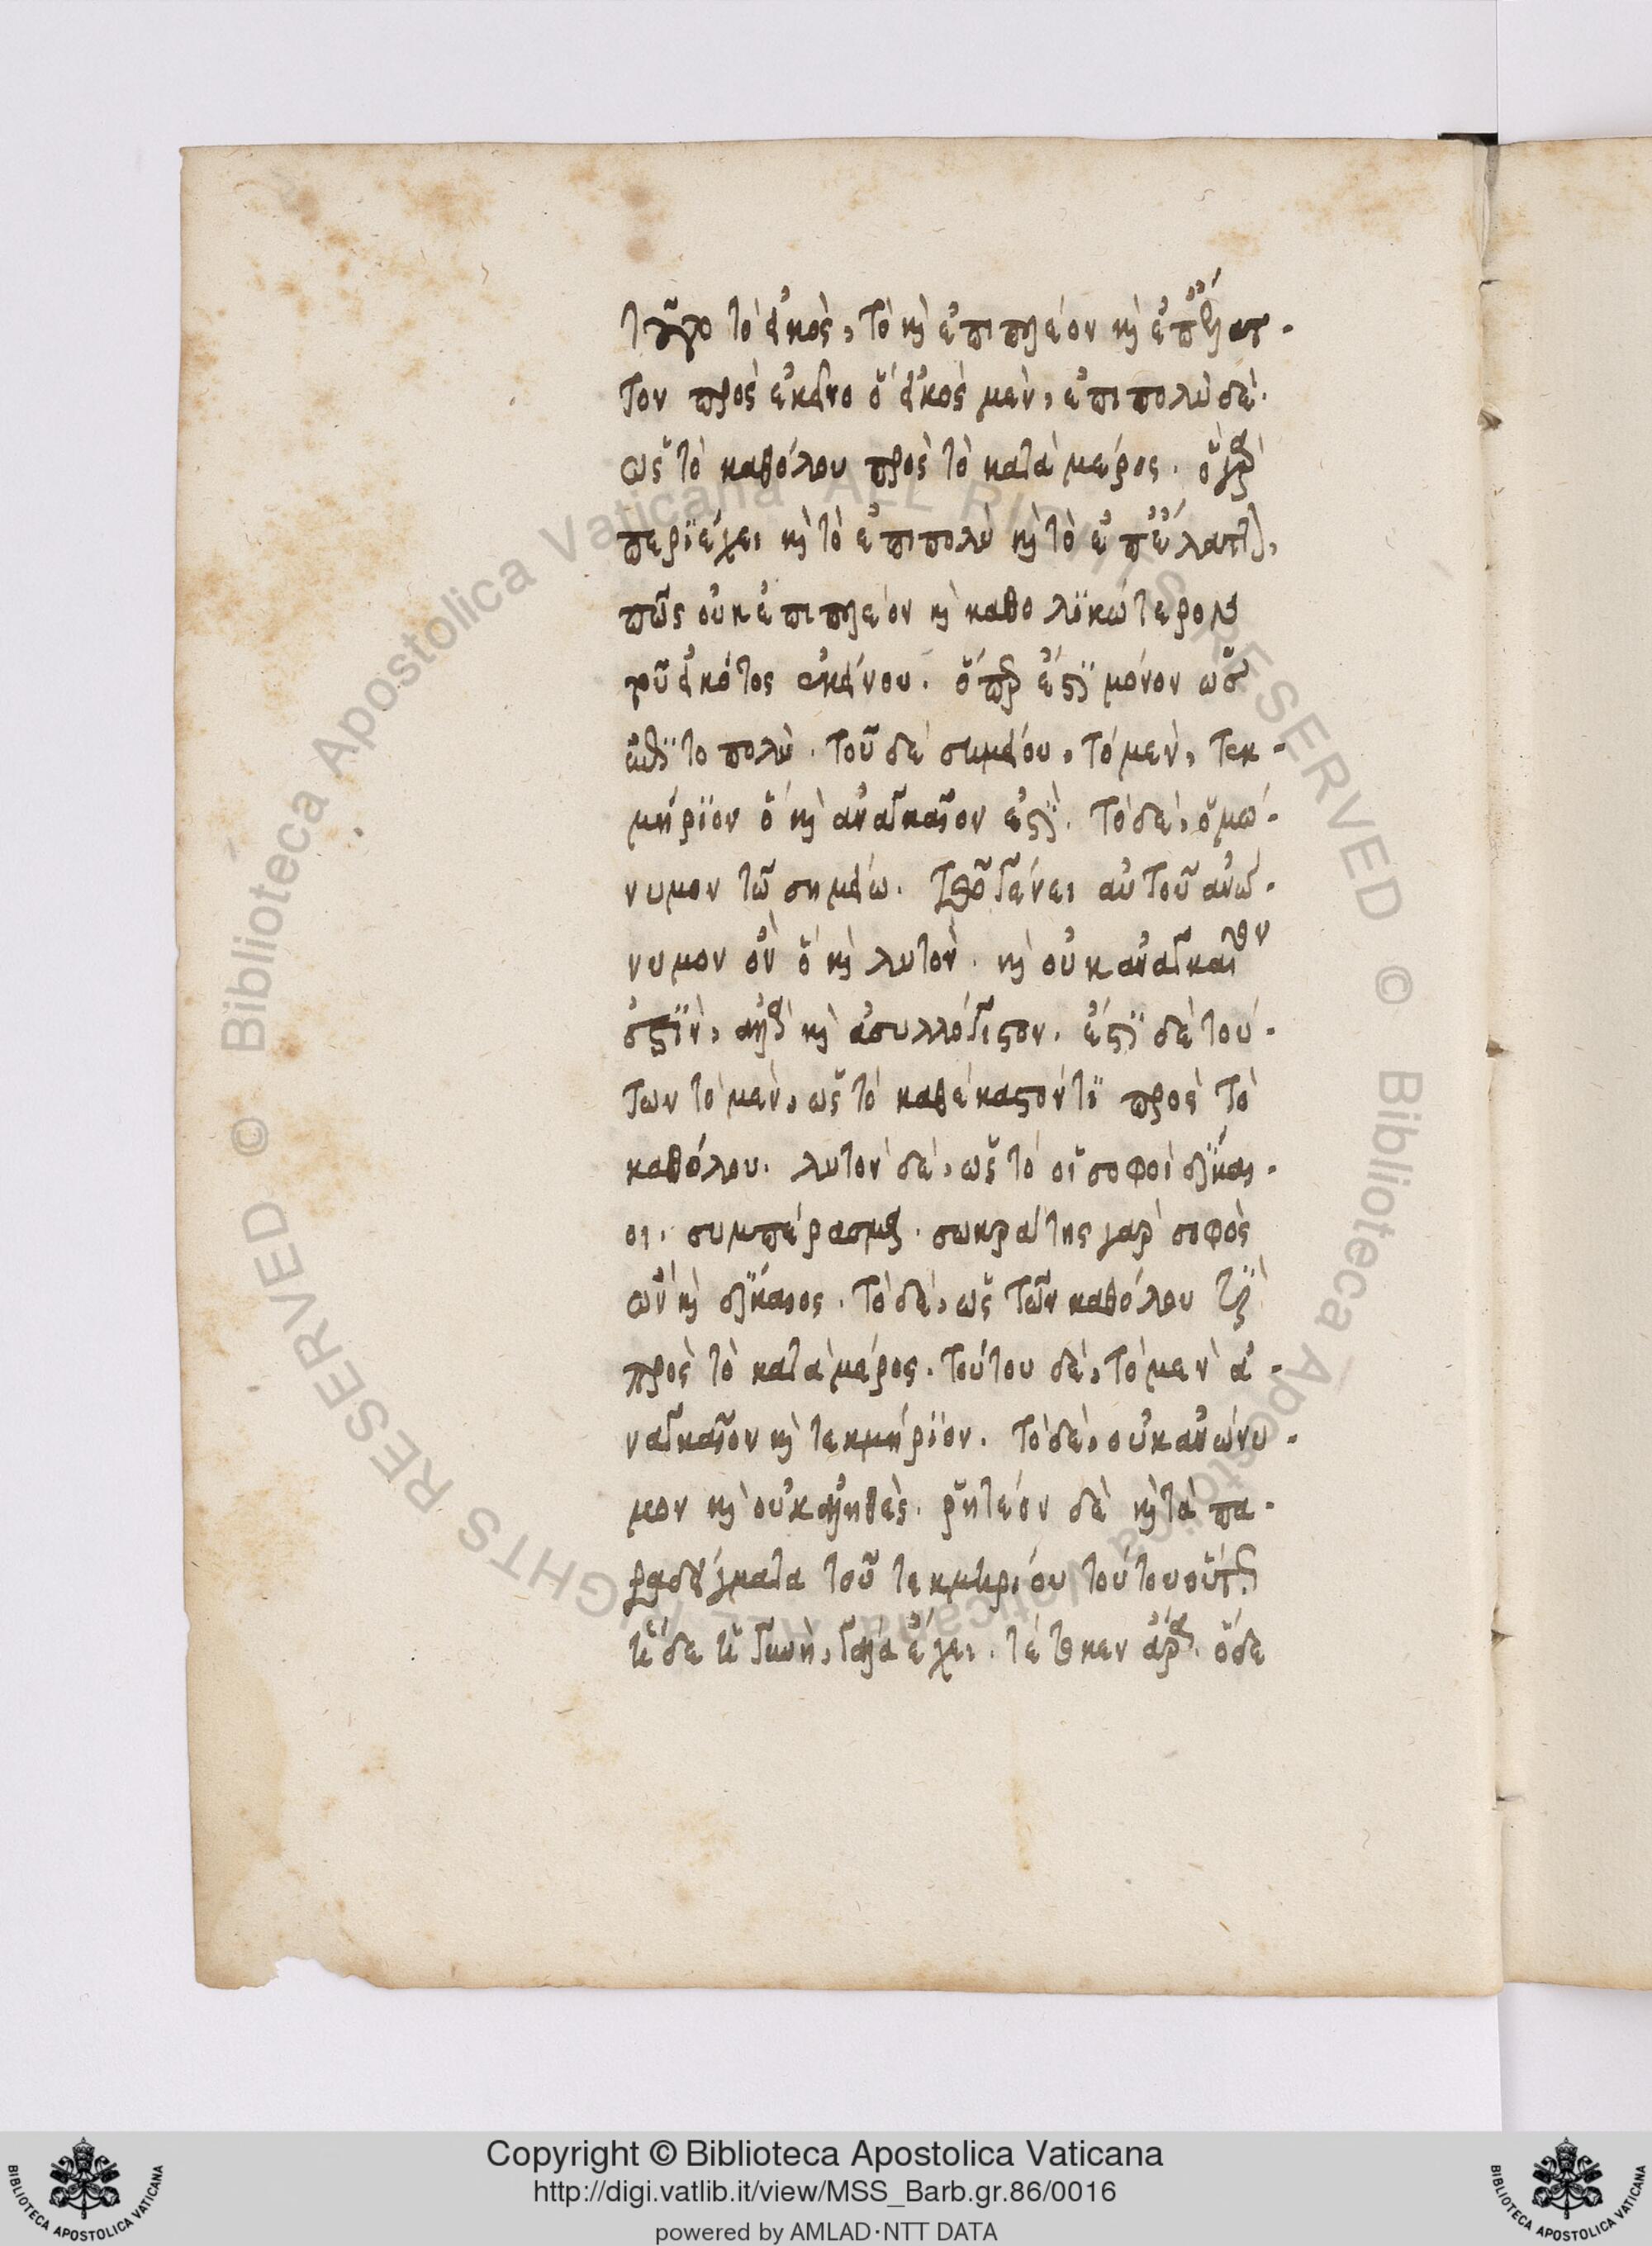 τοῦτο τὸ εἰκὸς, τὸ καὶ ἐπιπλέον καὶ ἐπ' ἔλατ-
τον πρὸς ἐκεῖνο ὃ εἰκὸς μὲν, ἐπιπολὺ δὲ.
ὡς τὸ καθόλου πρὸς τὸ κατὰ μέρος. ὃ γὰρ
περιέχει καὶ τὸ ἐπιπολὺ καὶ τὸ ἐπ' ἔλαττον,
πῶς οὐκ ἐπιπλέον καὶ καθολικώτερον
τοῦ εἰκότος ἐκείνου. ὅπερ ἐστὶ μόνον ὡς
ἐπὶ το πολὺ. τοῦ δὲ σημείου, τὸ μὲν, τεκ-
μήριον ὃ καὶ ἀναγκαῖον ἐστὶ. τὸ δὲ, ὁμώ-
νυμον τῶ σημείω. τῶ γένει αὐτοῦ ἀνώ-
νυμον ὂν ὃ καὶ λυτὸν. καὶ οὐκ ἀναγκαῖον
ἐστὶν, ἀλλὰ καὶ ἀσυλλόγιστον. ἔστι δὲ τού-
των τὸ μὲν, ὡς τὸ καθέκαστόν τι πρὸς τὸ
καθόλου. λυτὸν δὲ, ὡς τὸ οἱ σοφοὶ δίκαι-
οι. συμπέρασμα. σωκράτης γὰρ σοφὸς
ὢν καὶ δίκαιος. τὸ δὲ, ὡς τῶν καθόλου τι
πρὸς τὸ κατὰ μέρος. τούτου δὲ, τὸ μὲν ἀ-
ναγκαῖον καὶ τεκμήριον. τὸ δὲ, οὐκ ἀνώνυ-
μον καὶ οὐκ ἀληθὲς. ῥητέον δὲ καὶ τὰ πα-
ραδείγματα τοῦ τεκμηρίου τούτου οὕτως
ἡ δε ἡ γυνὴ, γάλα ἔχει. τέτοκεν ἄρα. ὅδε